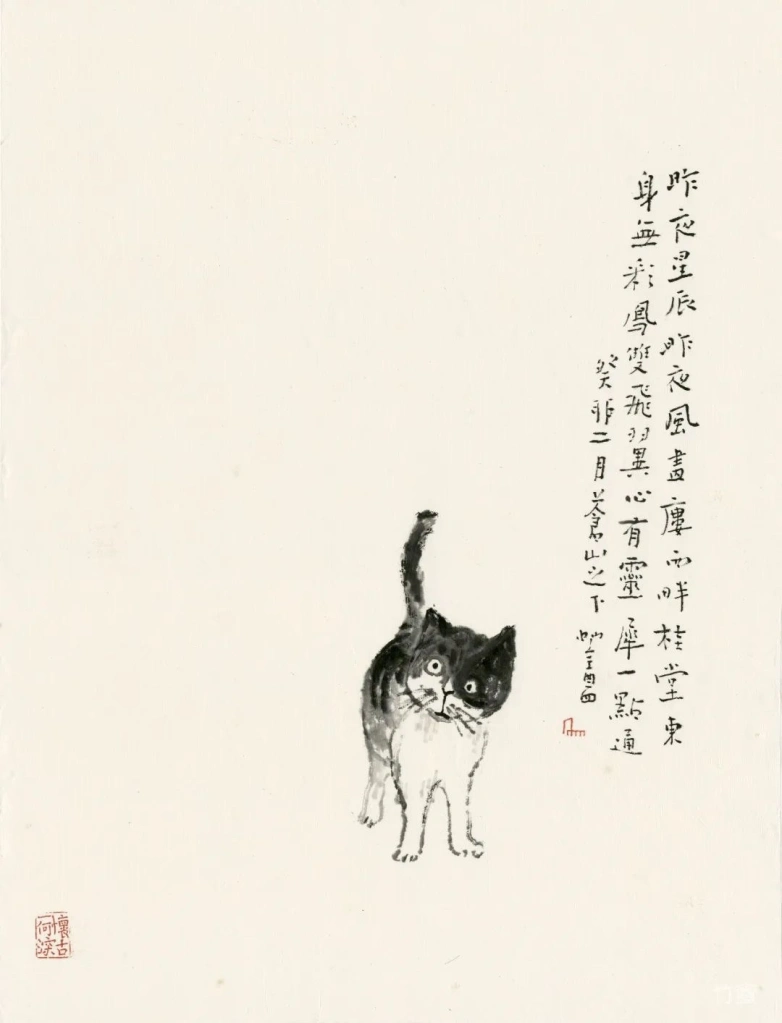 昨夜星辰昨夜風畫廔西畔桂堂東
身無彩鳳雙飛翼心有靈犀一點通
癸卯二月蒼山之下
懷古何深